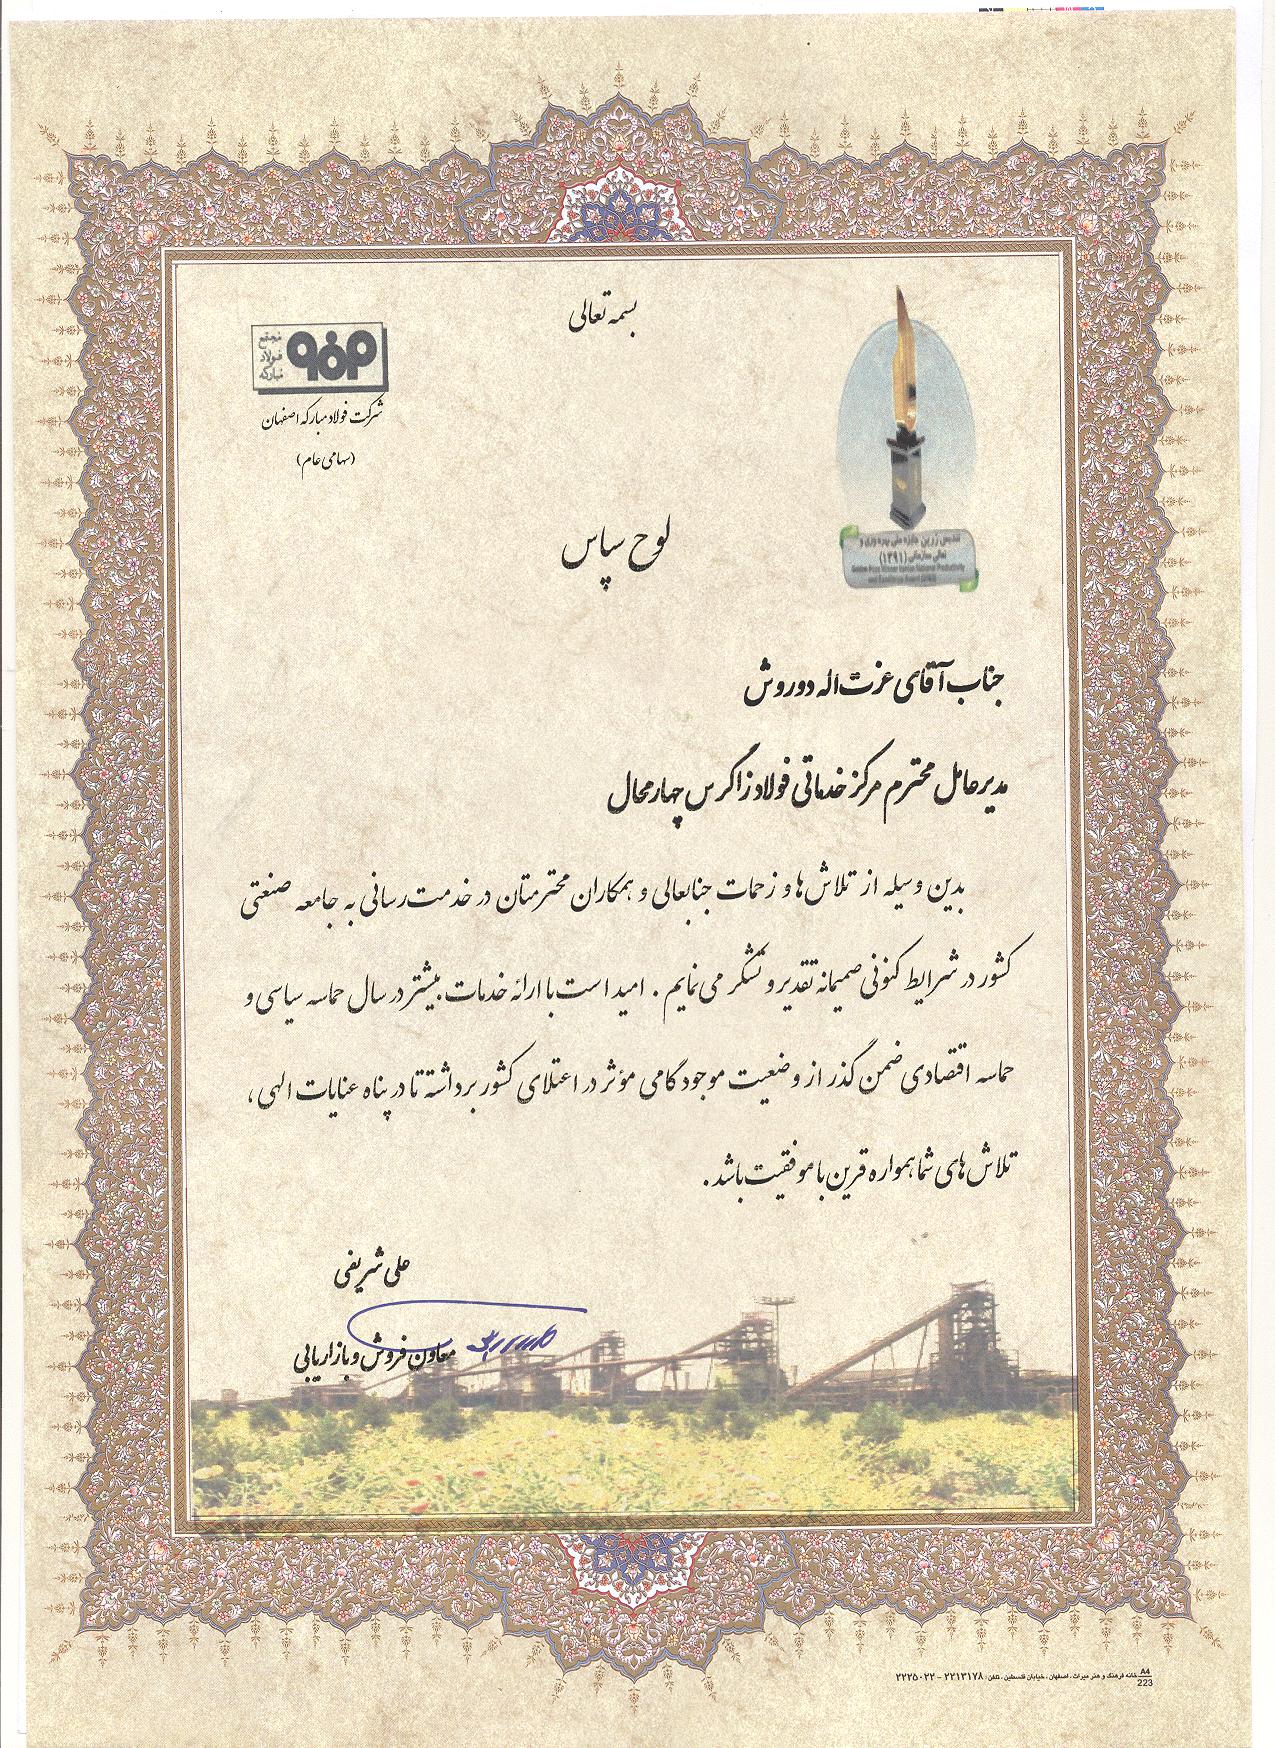 بسمه تعالی
مجتمع
فولاد
مبارکه
شرکت فولاد مبارکه اصفهان
(سهامی عام)
تندیس زرین جایزه ملی بهره وری و
تعالی سازمانی (۱۳۹۱)
لوح سپاس
جناب آقای عزت اله دوروش
مدیرعامل محترم مرکز خدماتی فولاد زاگرس چهارمحال
بدین وسیله از تلاش ها و زحمات جنابعالی و همکاران محترمتان در خدمت رسانی به جامعه صنعتی
کشور در شرایط کنونی صمیمانه تقدیر و تشکر می نمایم . امید است با ارائه خدمات بیشتر در سال حماسه سیاسی و
حماسه اقتصادی ضمن گذر از وضعیت موجود گامی مؤثر در اعتلای کشور برداشته تا در پناه عنایات الهی ،
تلاش های شما همواره قرین با موفقیت باشد .
علی شریفی
معاون فروش و بازاریابی
خانه فرهنگ و هنر میراث ، اصفهان ، خیابان فلسطین ، تلفن : ۲۲۱۳۱۷۸ - ۲۲۲۵۰۲۲
A4
223